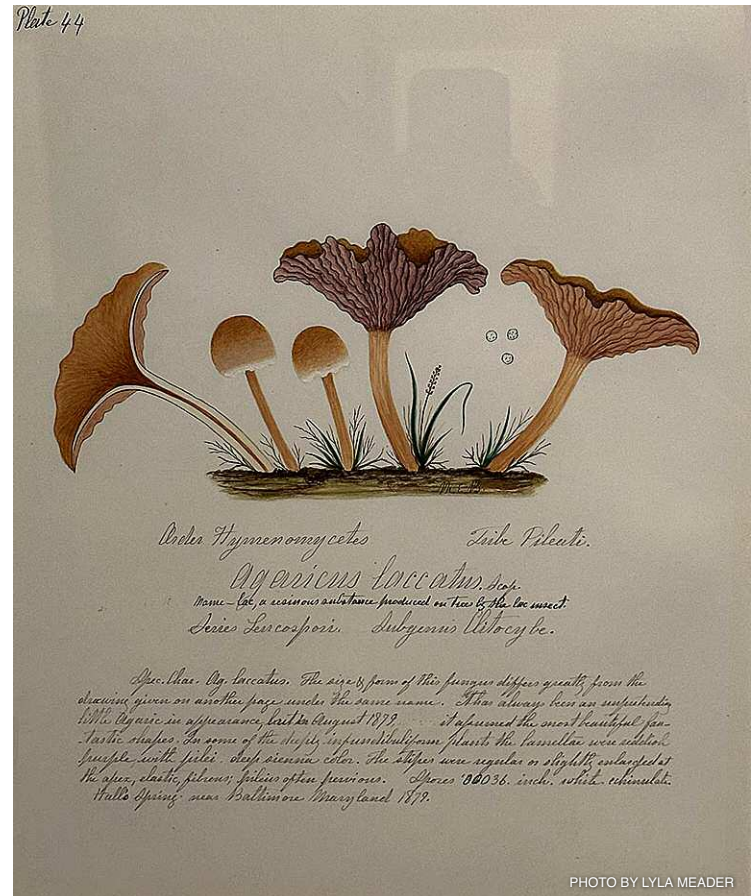 Plate 44
Order Hymenomycetes Tribe Pileati.
Agaricus laccatus. Scop.
Name - Lac, a resinous substance produced on tree by the lac insect.
Series Leucospori. Subgenus Clitocybe.
Spec. Char. Ag. laccatus. The size & form of this fungus differs greatly from the
drawing given on another page under the same name. It has always been an unpretending
little Agaric in appearance, but in August 1879 it assumed the most beautiful fan-
-tastic shapes. In some of the deeply infundibuliform plants the lamellae were reddish
purple with pilei deep sienna color. The stipes were regular or slightly enlarged at
the apex, elastic, fibrous; pileus often pervious. Spores 00036. inch. white. echinulate.
Hull's Spring near Baltimore Maryland 1879.
PHOTO BY LYLA MEADER